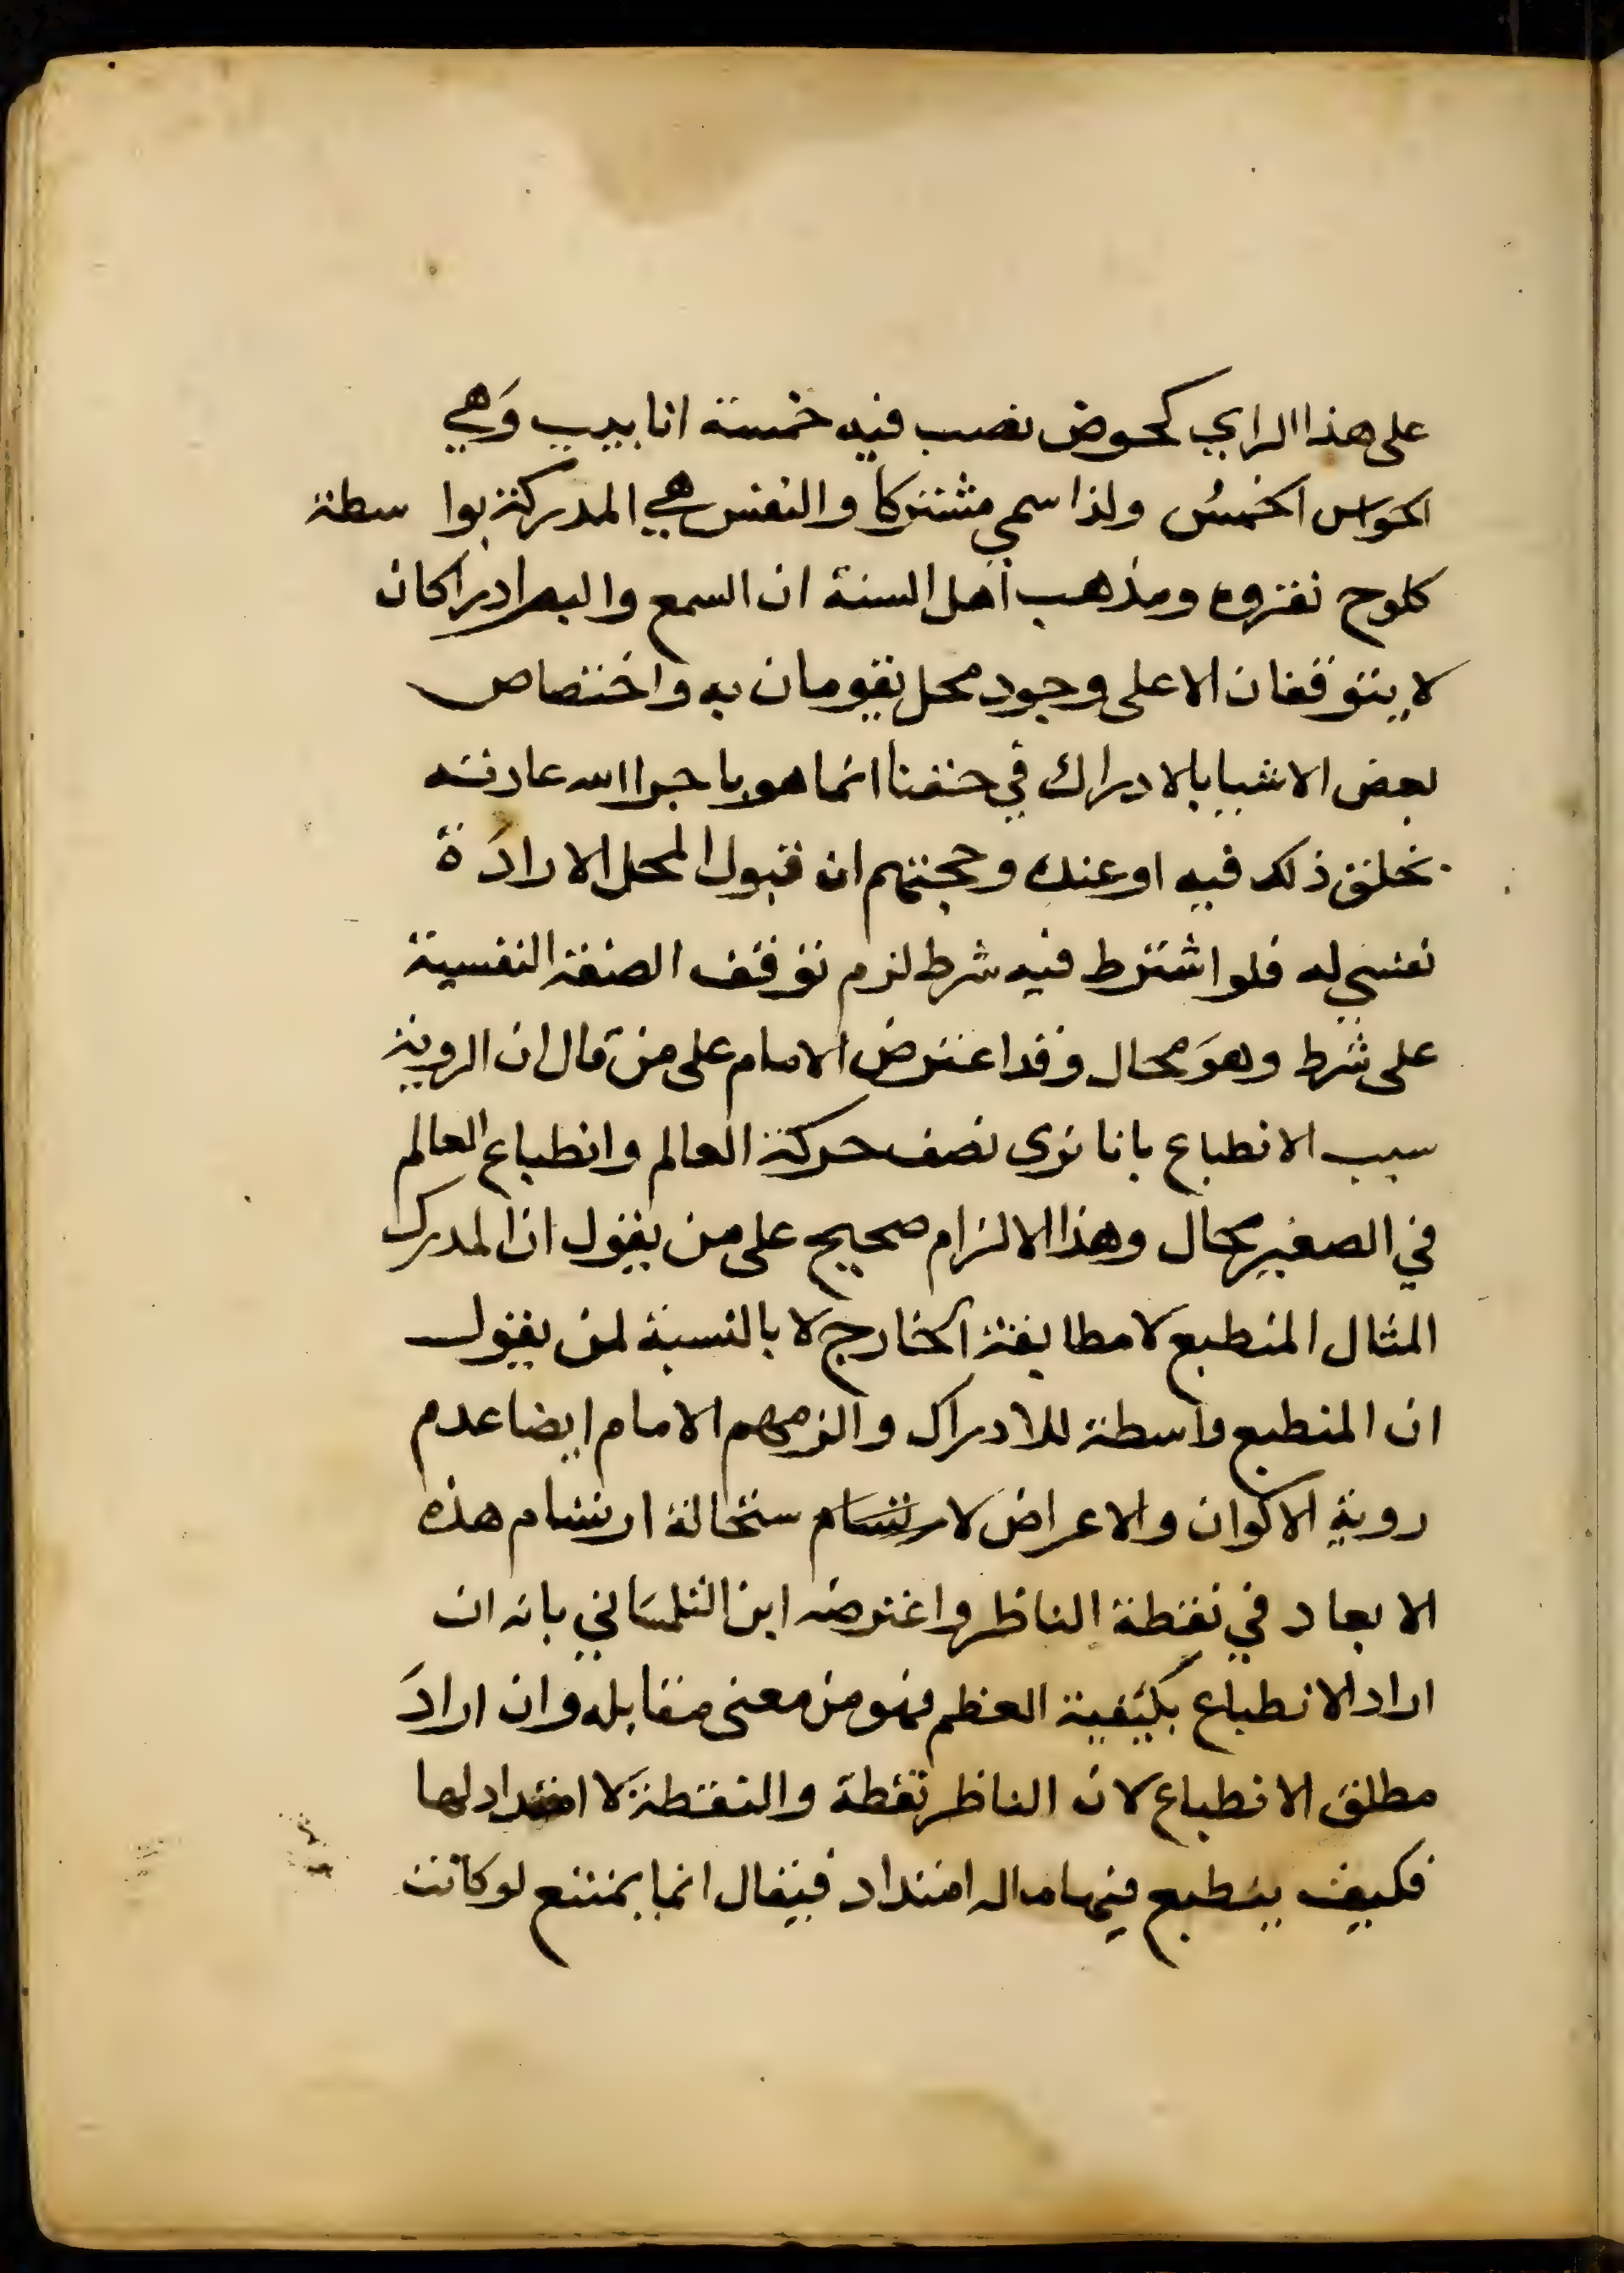 على هذا الراي كحوض نصب فيه خمسة انابيب وَهي
الحواس الخمسُ ولذا سمي مشتركا والنفس هي المدركة بوا سطة
كلوح تقروه ومذهب اهل السنة ان السمع والبصر ادراكان
لا يتوقفان الا على وجود محل يقومان به واختصاص
بعض الاشيا بالادراك في حقنا انما هو باجرا الله عادته
بخلق ذلك فيه او عنده وحجتهم ان قبول المحل الارادَة
نفسي له فلو اشترط فيه شرط لزم توقف الصفة النفسية
على شرط وهوَ محال وقد اعترض الامام على من قال ان الروية
سبب الانطباع بانا نرى نصف حركة العالم وانطباع العالم
في الصغير محال وهذا الالزام صحيح على من يقول ان المدرك
المثال المنطبع لا مطابقة الخارج لا بالنسبة لمن يقول
ان المنطبع واسطة للادراك والزمهم الامام ايضا عدم
روية الاكوان والاعراض لارتسام ستحالة ارتسام هذه
الابعاد في نقطة الناظر واعترضه ابن التلمساني بانه ان
اراد الانطباع بكيفية العظم فهو من معنى مقابله وان ارادَ
مطلق الانطباع لان الناظر نقطة والنقطة لا امتداد لها
فكيف ينطبع فيها ماله امتداد فيقال انما يمتنع لو كانت